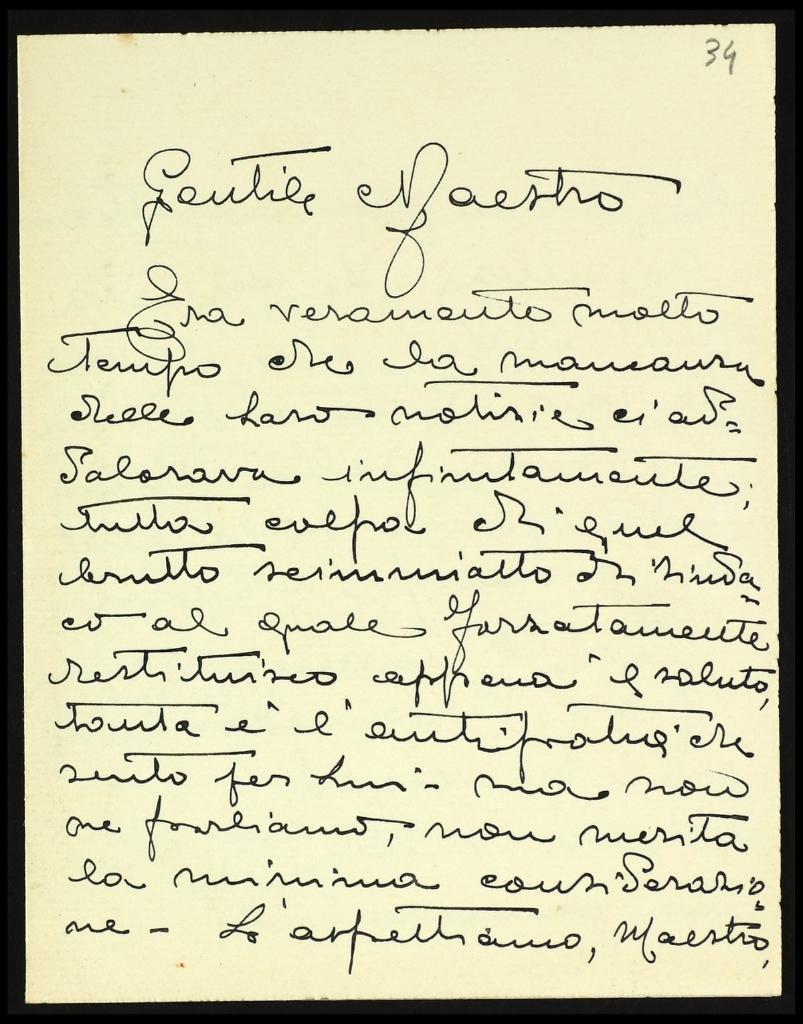 34
Gentile Maestro
Era veramente molto
tempo che la mancanza
delle Loro notizie ci ad=
dolorava infinitamente;
tutta colpa di quel
brutto scimmiotto di sinda=
co al quale forzatamente
restituisco appena il saluto,
tanta è l'antipatia che
sento per lui - ma non
ne parliamo, non merita
la minima considerazio=
ne - Lo aspettiamo, Maestro,